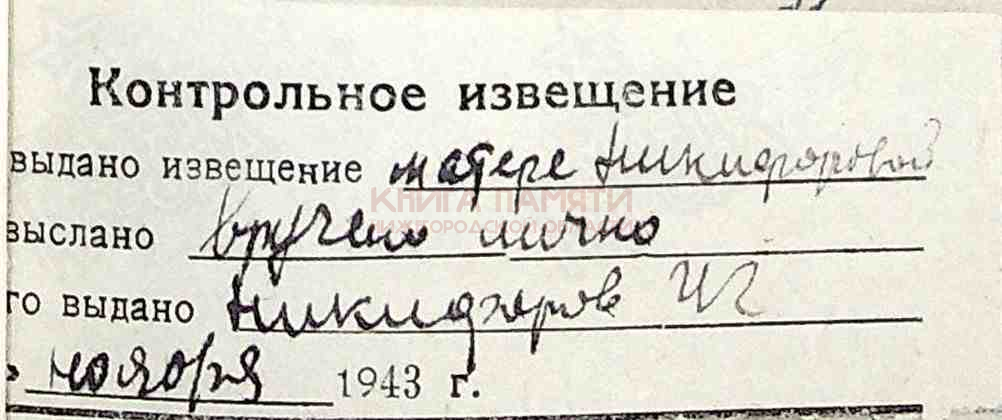 Контрольное извещение
выдано извещение матере Никифоровой
КНИГА ПАМЯТИ
НИЖЕГОРОДСКОЙ ОБЛАСТИ
выслано вручено лично
го выдано Никифоров И Г
ноября 1943 г.